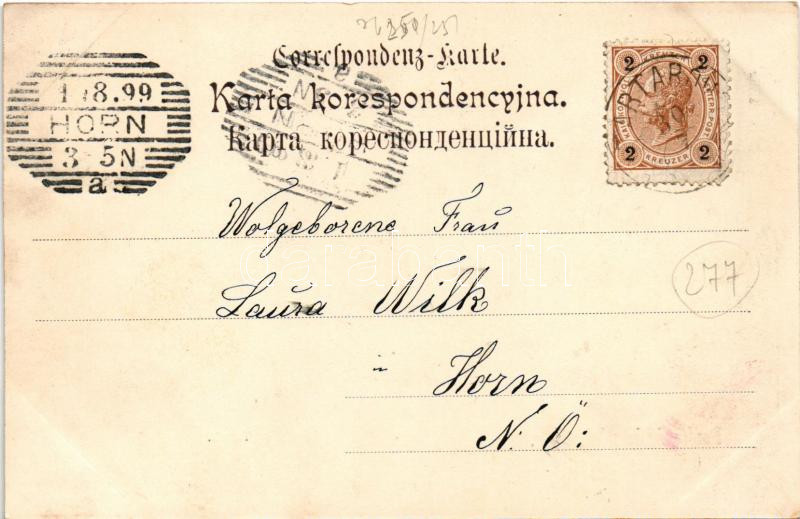 Correspondenz-Karte.
Karta korespondencyjna.
Карта кореспонденційна.
8.99
HORN
3 5N
a
2 2
2 KREUZER 2
Wolgeborene Frau
Laura Wilk
in Horn
N. Ö:
277